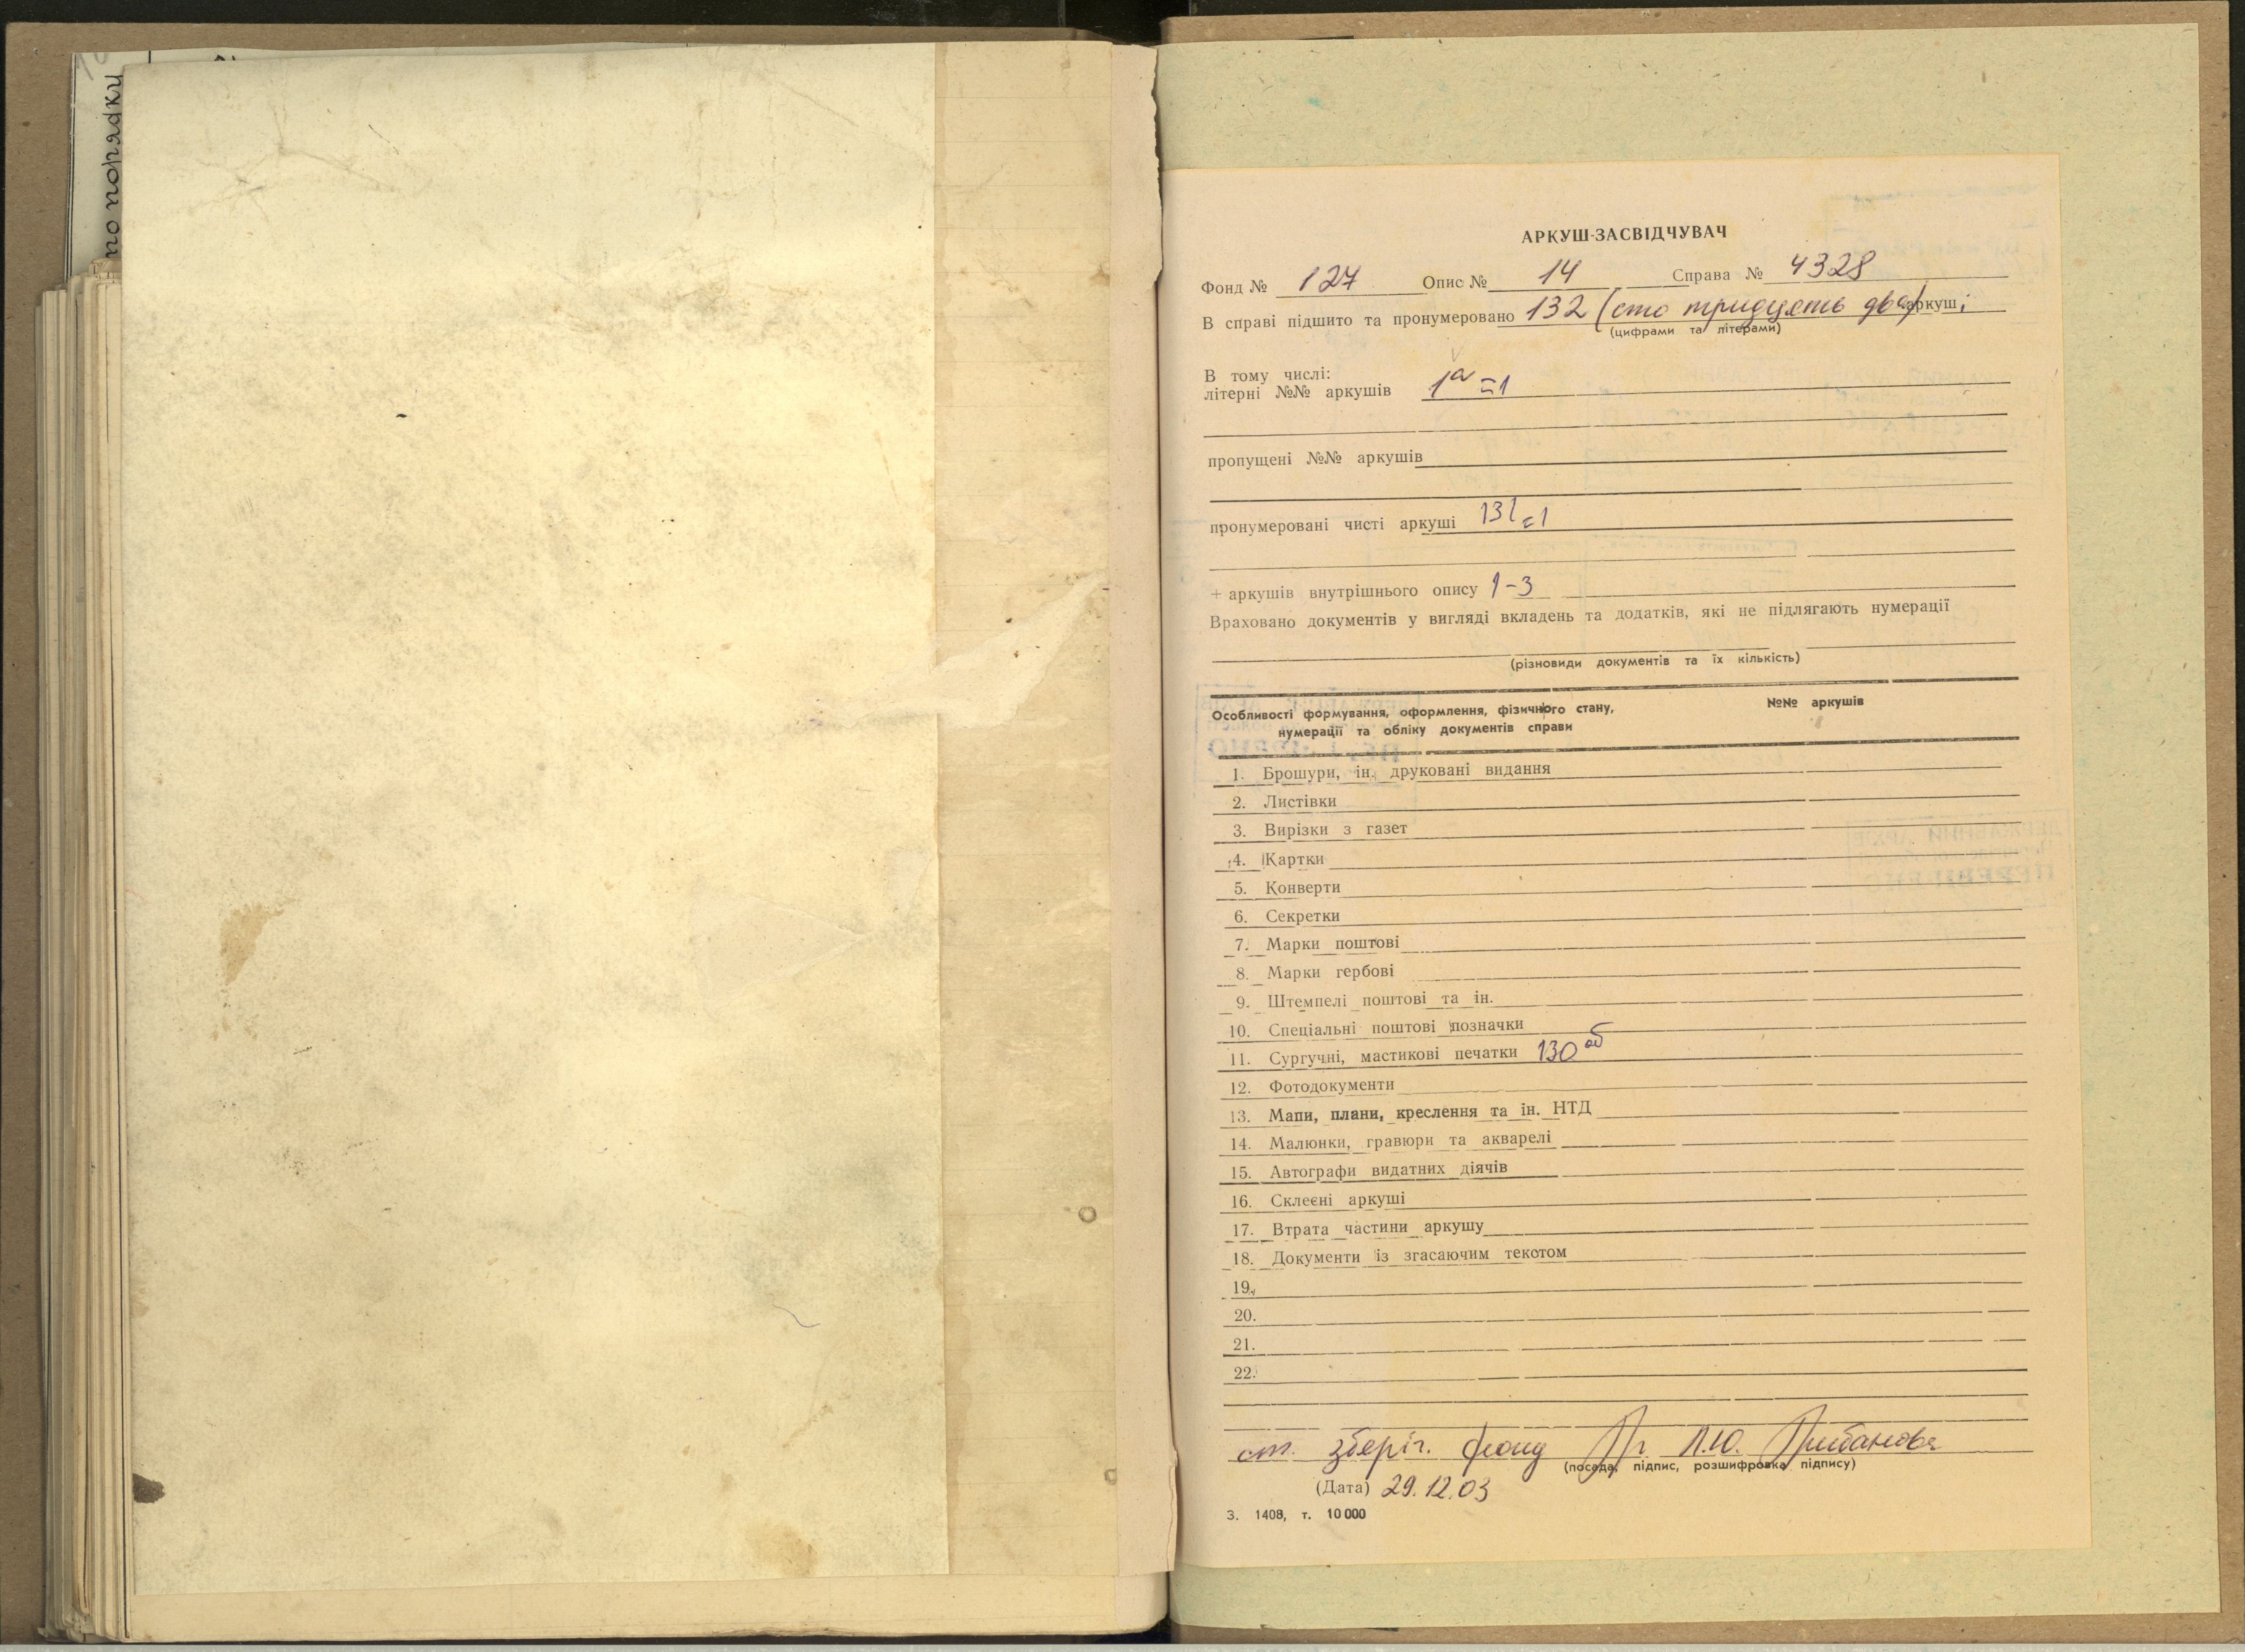 по порядку
АРКУШ-ЗАСВІДЧУВАЧ
Фонд № 127 Опис № 14 Справа № 4328
В справі підшито та пронумеровано 132 (сто тридцять два) аркуші
(цифрами та літерами)
В тому числі:
літерні №№ аркушів 1а=1
пропущені №№ аркушів
пронумеровані чисті аркуші 131=1
+ аркушів внутрішнього опису 1-3
Враховано документів у вигляді вкладень та додатків, які не підлягають нумерації
(різновиди документів та їх кількість)
Особливості формування, оформлення, фізичного стану, №№ аркушів
нумерації та обліку документів справи
1. Брошури, ін. друковані видання
2. Листівки
3. Вирізки з газет
4. Картки
5. Конверти
6. Секретки
7. Марки поштові
8. Марки гербові
9. Штемпелі поштові та ін.
10. Спеціальні поштові позначки
11. Сургучні, мастикові печатки 130об
12. Фотодокументи
13. Мапи, плани, креслення та ін. НТД
14. Малюнки, гравюри та акварелі
15. Автографи видатних діячів
16. Склеєні аркуші
17. Втрата частини аркушу
18. Документи із згасаючим текстом
19.
20.
21.
22.
ст. зберіг. фонду Л.Ю.
(посада, підпис, розшифровка підпису)
(Дата) 29.12.03
З. 1408, т. 10 000